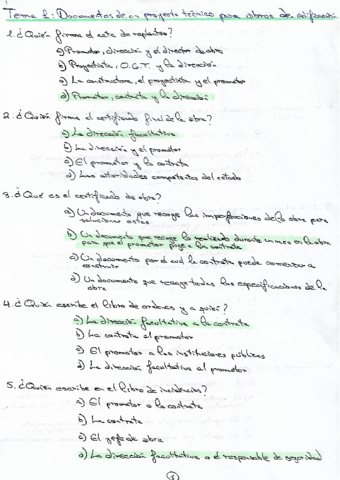 Tema 2: Documentos de un proyecto técnico para obras de edificación
1. ¿Quién firma el acta de replanteo?
a) Promotor, dirección y el director de obra
b) Proyectista, O.C.T. y la dirección
c) La constructora, el proyectista y el promotor
d) Promotor, contrata y la dirección
2. ¿Quién firma el certificado final de la obra?
a) La dirección facultativa
b) La dirección y el promotor
c) El promotor y la contrata
d) Las autoridades competentes del estado
3. ¿Qué es el certificado de obra?
a) Un documento que recoge las imperfecciones de la obra para
solucionar estas
b) Un documento que recoge lo realizado durante un mes en la obra
para que el promotor pague a la contrata
c) Un documento por el cual la contrata puede comenzar a
construir
d) Un documento que recoge todas las especificaciones de la
obra
4. ¿Quién escribe el libro de ordenes y a quién?
a) La dirección facultativa a la contrata
b) La contrata al promotor
c) El promotor a las instituciones públicas
d) La dirección facultativa al promotor
5. ¿Quien escribe en el libro de incidencias?
a) El promotor o la contrata
b) La contrata
c) El jefe de obra
d) La dirección facultativa o el responsable de seguridad